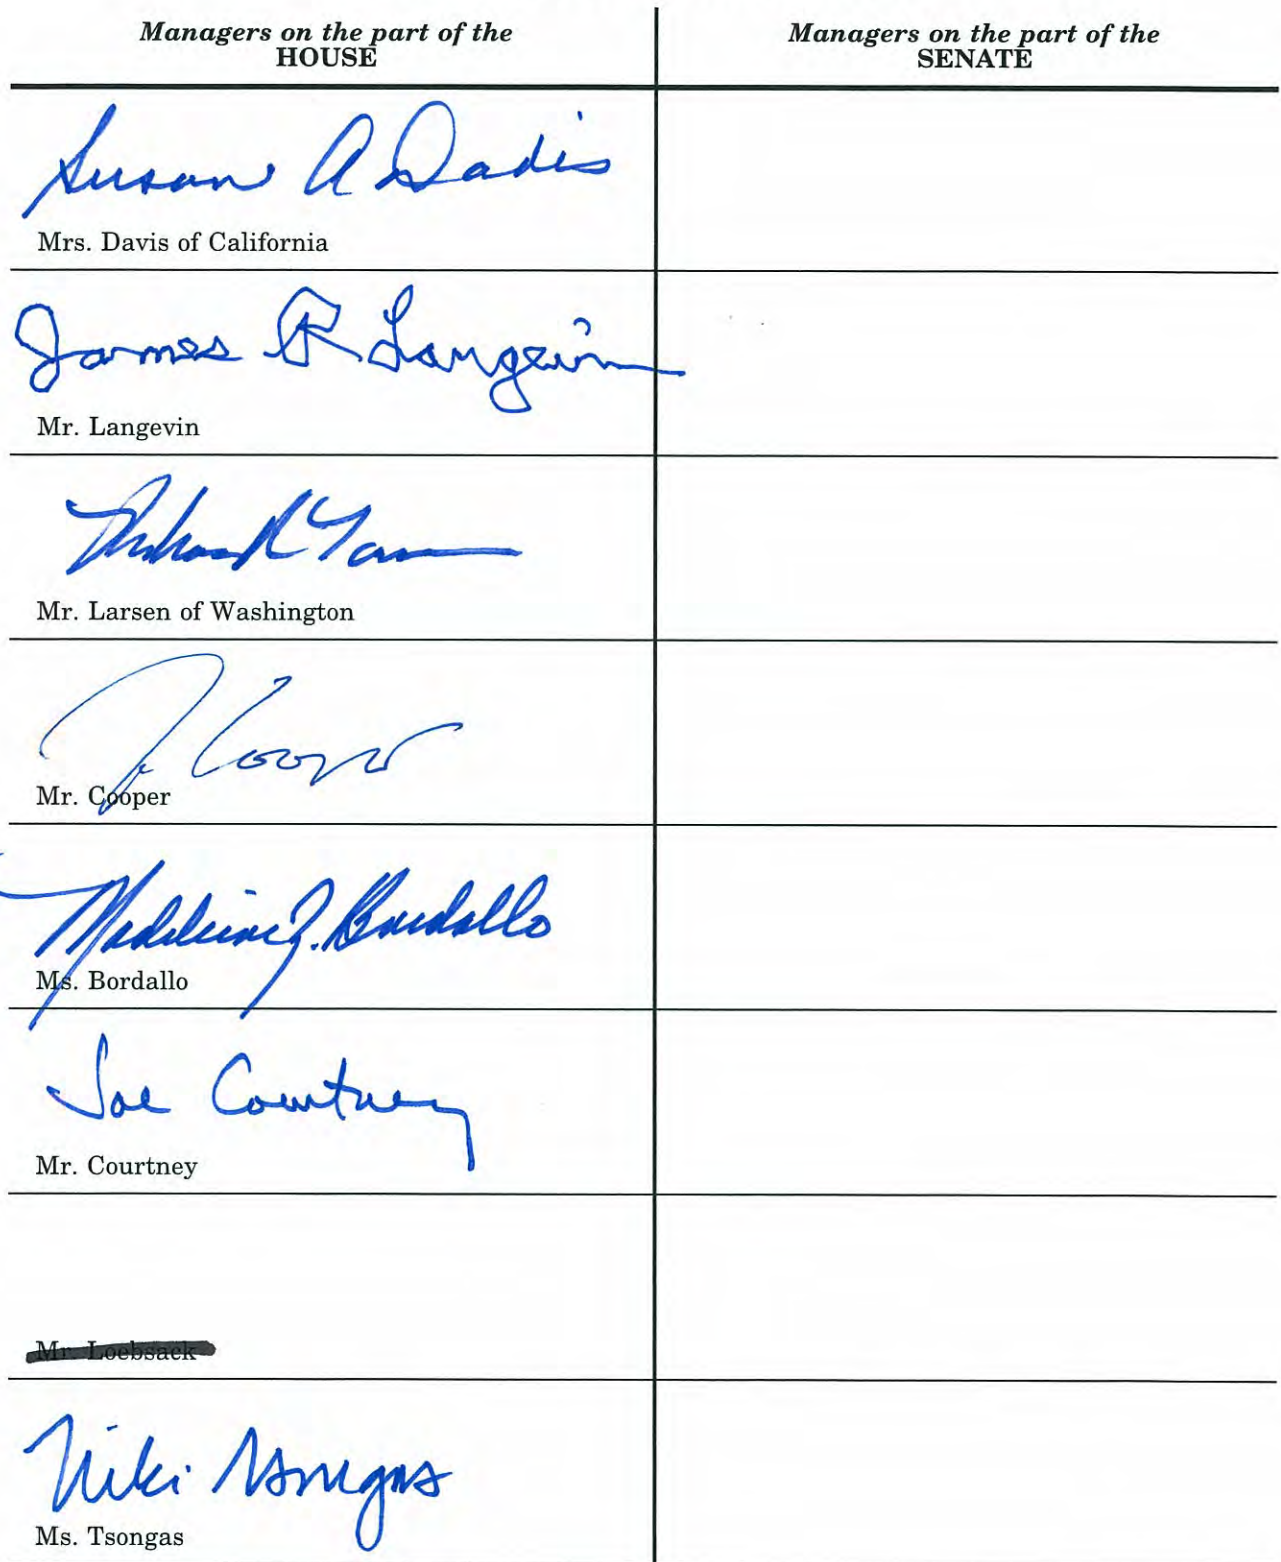 Managers on the part of the
HOUSE
Managers on the part of the
SENATE
Susan A Davis
Mrs. Davis of California
James R Langevin
Mr. Langevin
Mr. Larsen of Washington
J. Cooper
Mr. Cooper
Madeleine Z. Bordallo
Ms. Bordallo
Joe Courtney
Mr. Courtney
Mr. Loebsack
Niki Tsongas
Ms. Tsongas